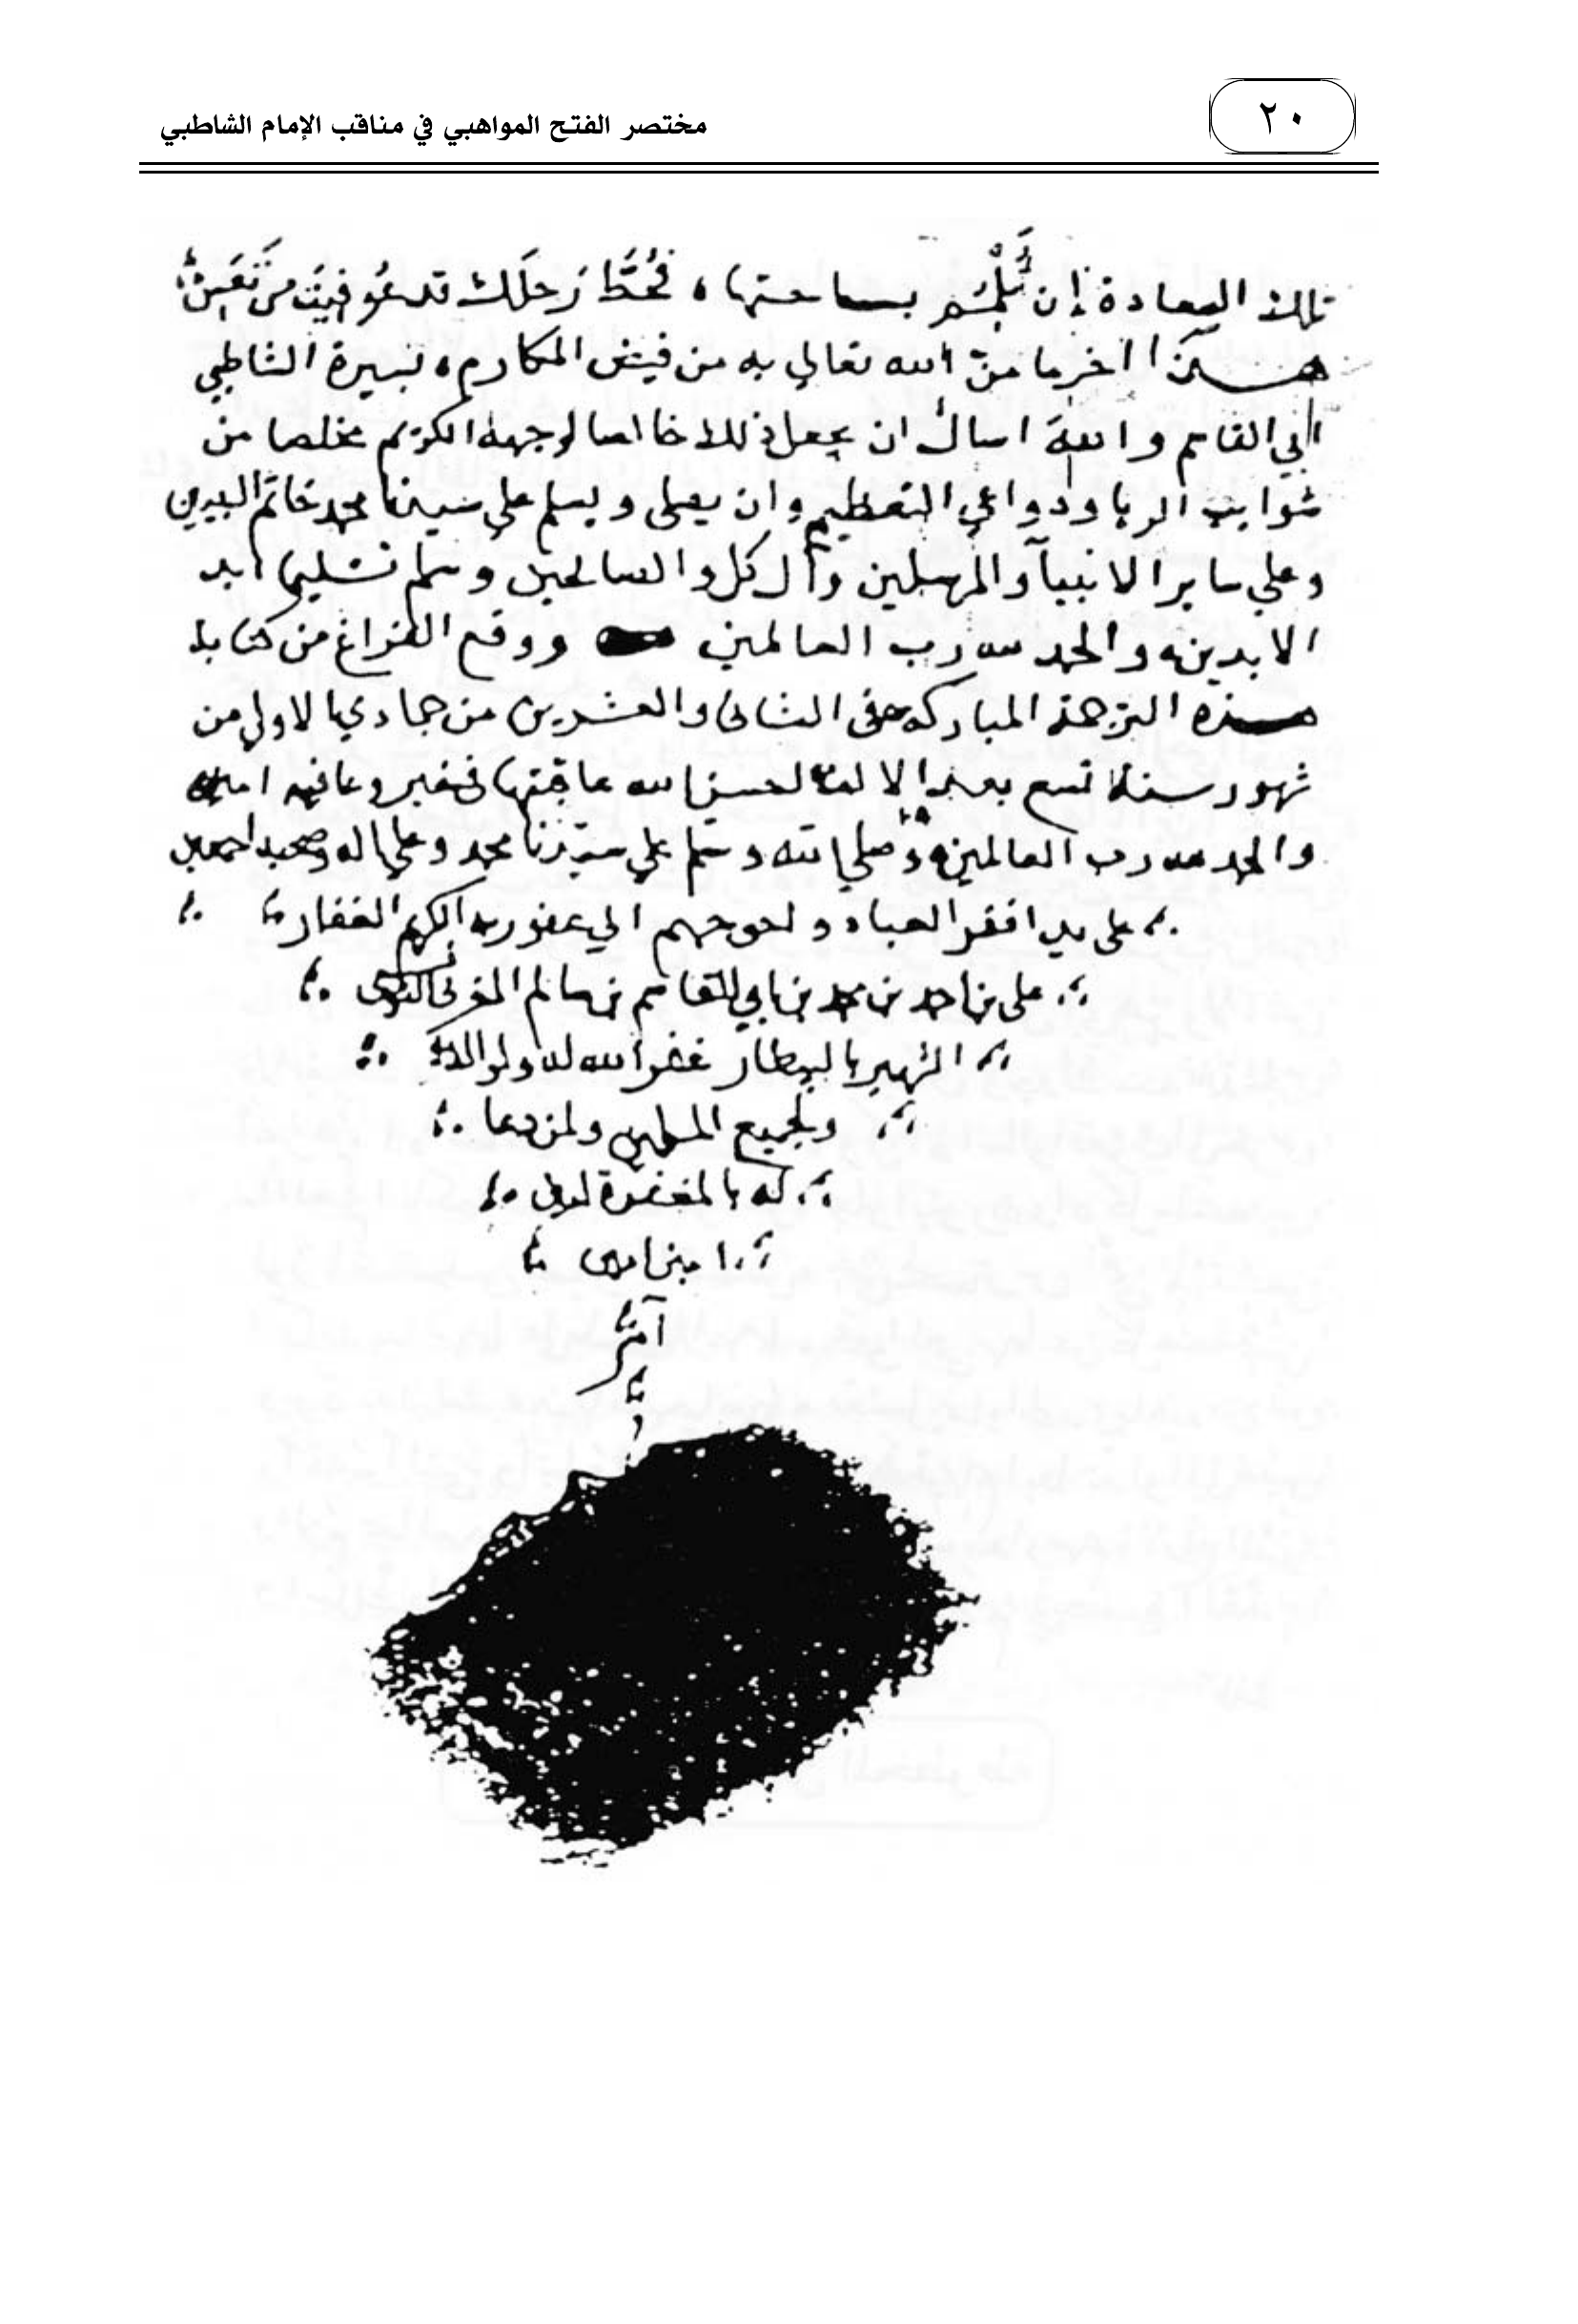 ٢٠
مختصر الفتح المواهبي في مناقب الإمام الشاطبي
تلك السعادة إن تُلْمِم بساحتها، فَحُطَّ رَحلَك قد عُوفيتَ من تَعَسٍ
هذا اخر ما منّ الله تعالي به من فيض المكارم، بسيرة الشاطبي
ابي القاسم والله اسأل ان يجعل ذلك خالصا لوجهه الكريم مخلصا من
شوايب الريا ودواعي التعظيم وان يصلى ويسلم علي سيدنا محمد خاتم النبيين
وعلي ساير الانبيآ والمرسلين وآل كل والصالحين وسلم تسليما ابد
الابدين والحمد لله رب العالمين ووقع الفراغ من كتابة
هذه النزهة المباركه في الثانى والعشرين من جمادي الاولي من
شهور سنة تسع بعد الالف احسن الله عاقبتها فى خير وعافيه امين
والحمد لله رب العالمين وصلي الله وسلم علي سيّدنا محمد وعلي اله وصحبه اجمعين
على يد افقر العباد واحوجهم الي عفو ربه الكريم الغفار
على بن احمد بن محمد بن ابي القاسم بن سالم المغربى
الشهير بالبيطار غفر الله له ولوالديه
ولجميع المسلمين ولمن دعا
له بالمغفرة
امين امين
آمين